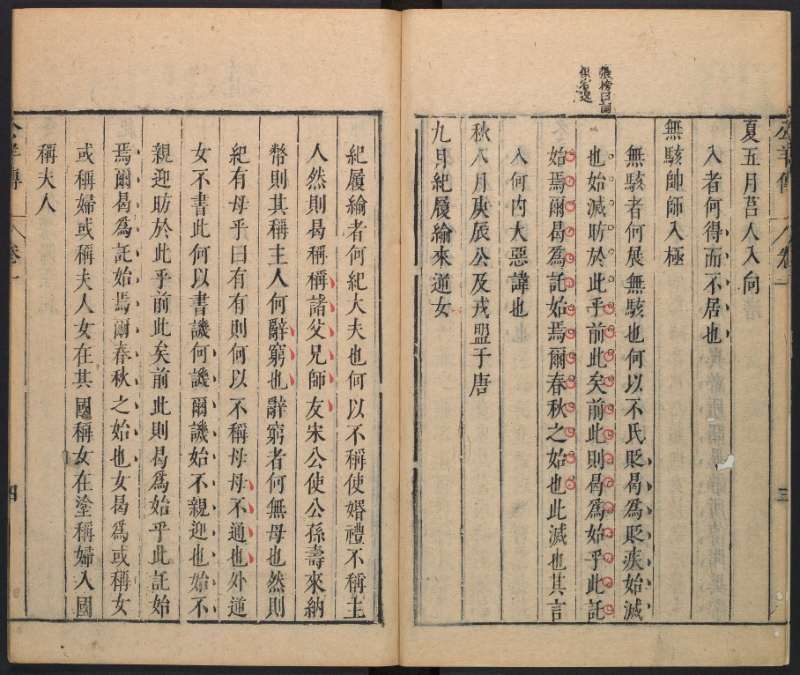 夏五月莒人入向
入者何得而不居也
無駭帥師入極
無駭者何展無駭也何以不氏貶曷為貶疾始滅
也始滅昉於此乎前此矣前此則曷為始乎此託
始焉爾曷為託始焉爾春秋之始也此滅也其言
入何內大惡諱也
秋八月庚辰公及戎盟于唐
九月紀履緰來逆女
紀履緰者何紀大夫也何以不稱使婚禮不稱主
人然則曷稱稱諸父兄師友宋公使公孫壽來納
幣則其稱主人何辭窮也辭窮者何無母也然則
紀有母乎曰有有則何以不稱母母不通也外逆
女不書此何以書譏何譏爾譏始不親迎也始不
親迎昉於此乎前此矣前此則曷為始乎此託始
焉爾曷為託始焉爾春秋之始也女曷為或稱女
或稱婦或稱夫人女在其國稱女在塗稱婦入國
稱夫人
公羊傳
卷一
三
公羊傳
卷一
四